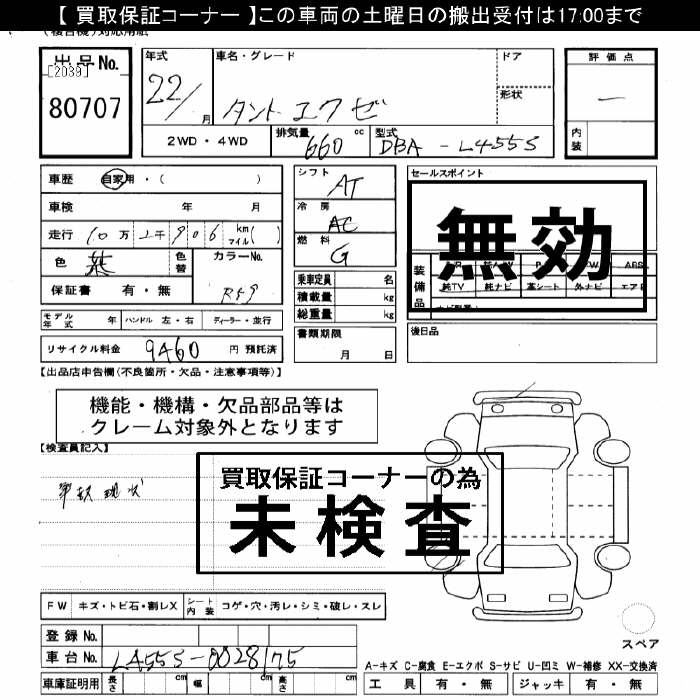 【 買取保証コーナー 】この車両の土曜日の搬出受付は17:00まで
出品No.
[2039]
80707
年式
22/
月
車名・グレード
タントエクゼ
ドア
形状
評価点
―
内装
2WD・4WD
排気量
660
cc
型式
DBA - L455S
車歴 自家用・( )
車検 年 月
走行 10万 2千 906 km マイル( )
色 紫 色替 カラーNo.
R59
保証書 有・無
シフト
AT
冷房
AC
燃料
G
乗車定員 名
積載量 kg
総重量 kg
書類期限
月 日
セールスポイント
無効
装備品
純TV 純ナビ 革シート 外ナビ
後日品
モデル年式 年 ハンドル 左・右 ディーラー・並行
リサイクル料金 9460 円 預託済
【出品店申告欄(不良箇所・欠品・注意事項等)】
機能・機構・欠品部品等は
クレーム対象外となります
【検査員記入】
事故現状
買取保証コーナーの為
未検査
FW キズ・トビ石・割レX シート内装 コゲ・穴・汚レ・シミ・破レ・スレ
登録No.
車台No. L455S-0028175
車庫証明用 長さ cm 幅 cm 高さ cm
スペア
A-キズ C-腐食 E-エクボ S-サビ U-凹ミ W-補修 XX-交換済
工具 有・無 ジャッキ 有・無